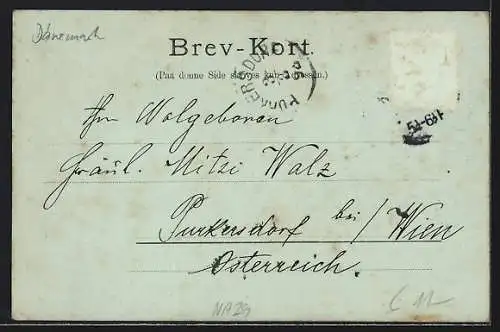 Dänemark
Brev-Kort.
(Paa denne Side skrives kun Adressen.)
PURKERSDORF
Ihr Wolgeboren
Fräul. Mitzi Walz
Purkersdorf bei / Wien
Österreich.